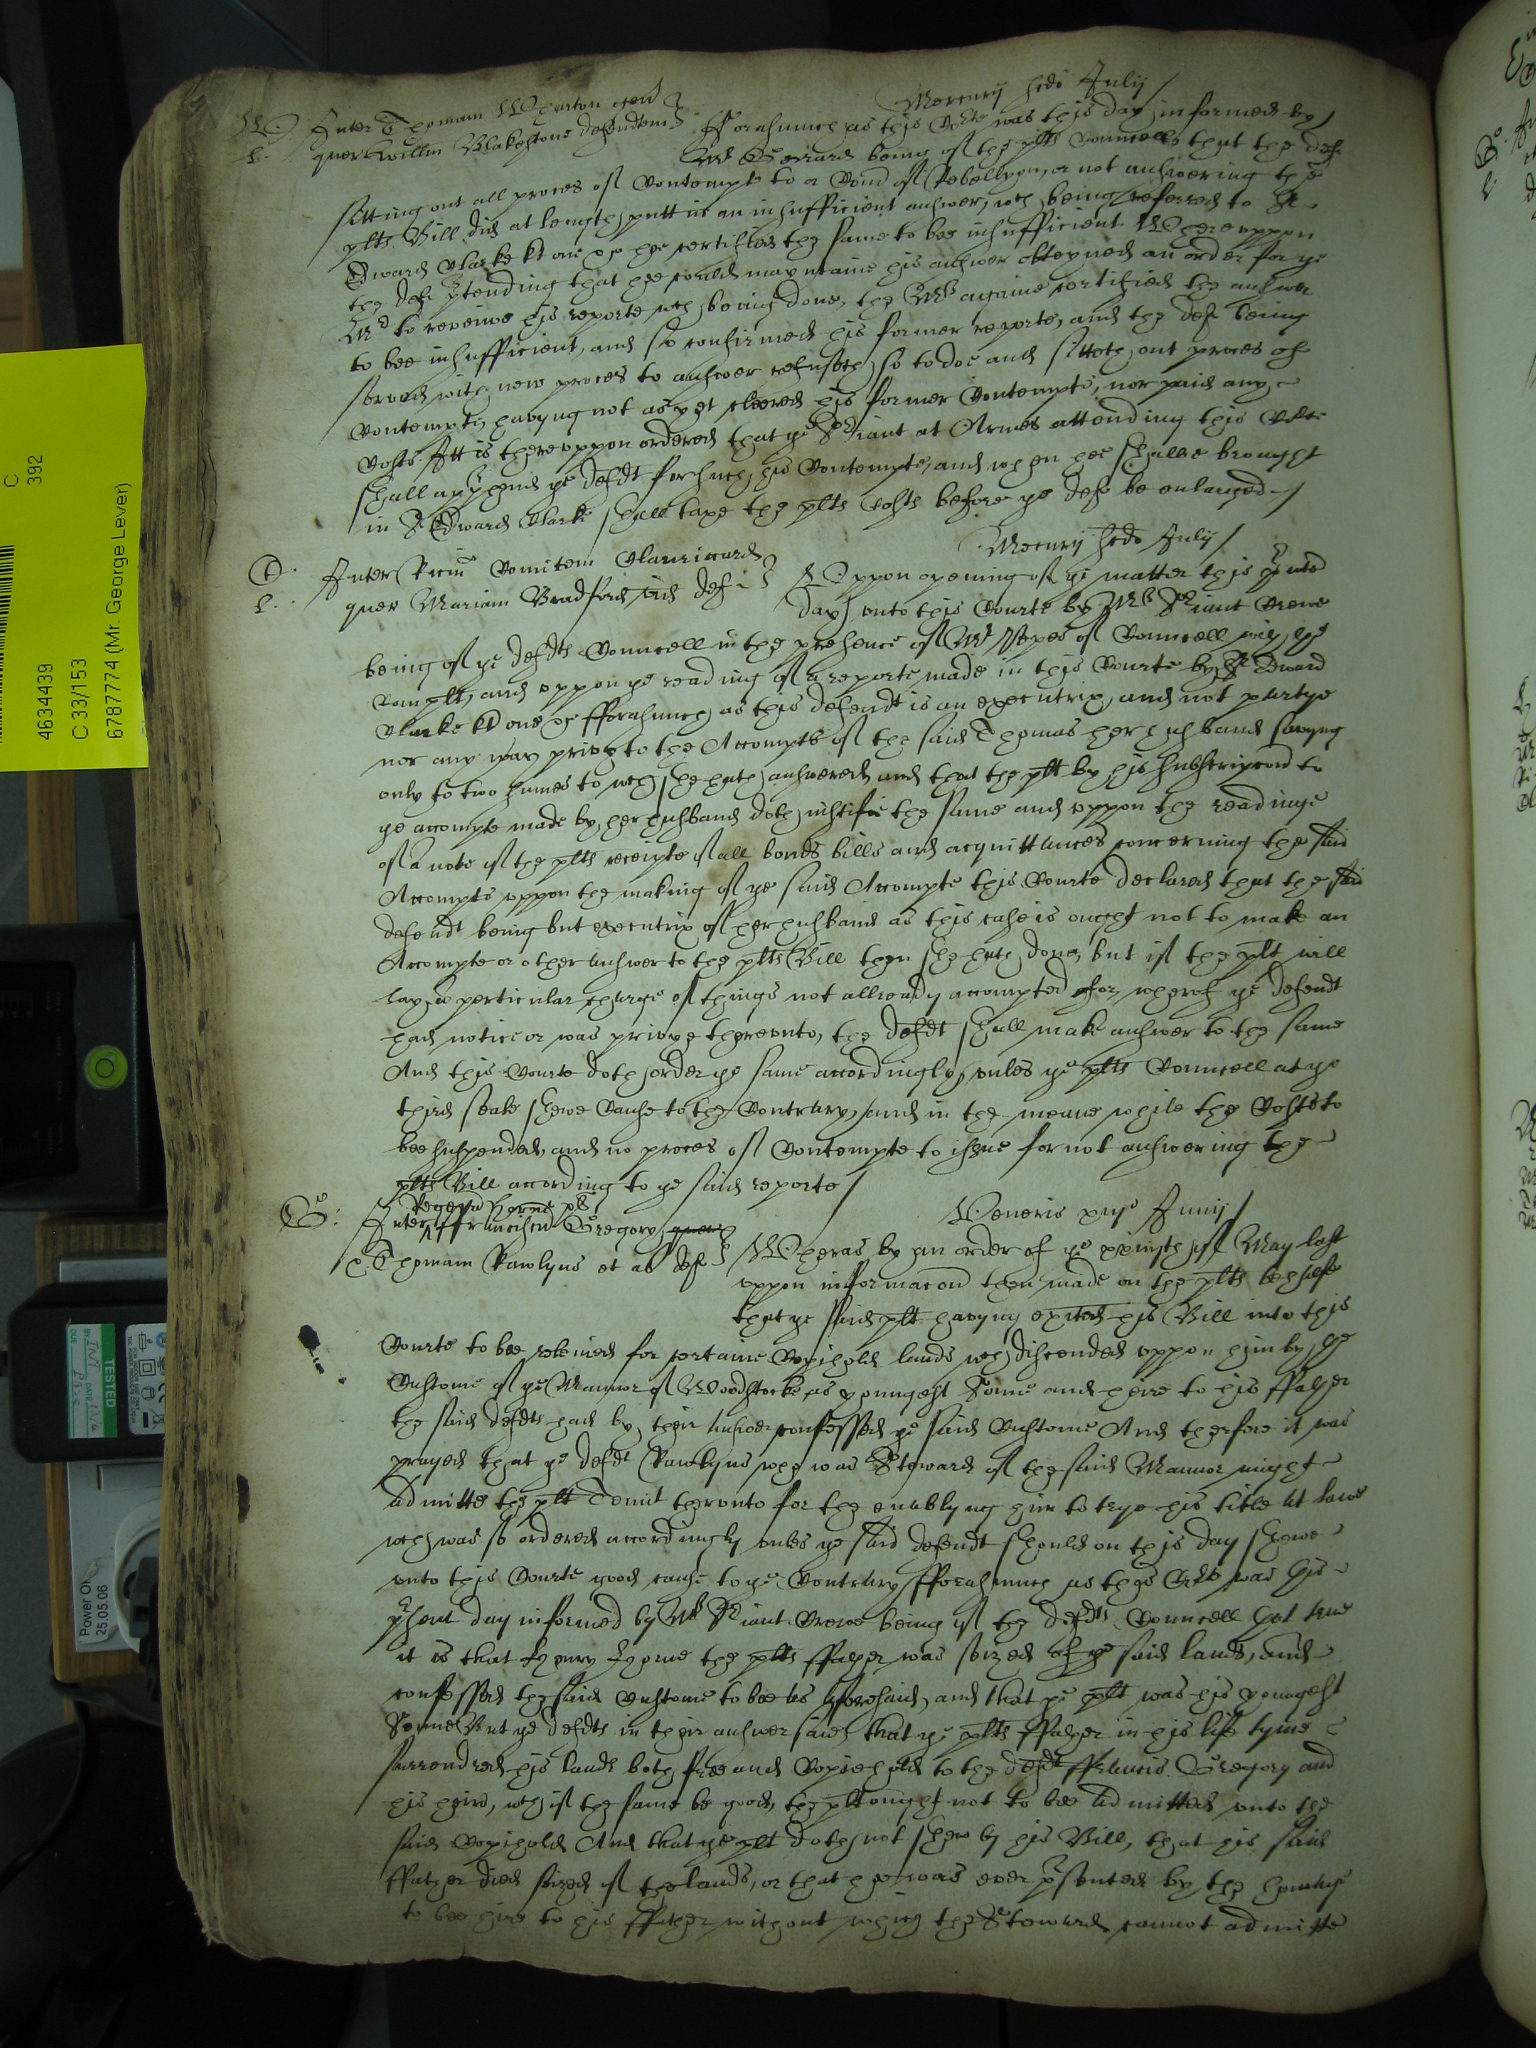 Mercurij scdo Julij
W Inter Thomam Wharton gen
quer Willm Blakestone defendtem
Forasmuch as this Courte was this day informed by
L Mr Gerrard being of the plts Councell that the deft
sitting out all proces of Contempte to a Comd of Rebellyon, or not answering the
plts Bill did at length putt in an insufficient answer, wch being referred to Sr
Edward Clarke kt one &c hee certified the same to bee insufficient Whereuppon
the deft ptending that hee could mayntaine his answer obteyned an order for ye
Mr to reveiwe his reporte wch being done, the Mr againe certified the answer
to bee insufficient, and so confirmed his former reporte, and the deft being
served with new proces to answer refuseth so to doe and sitteth out proces of
Contempte havyng not as yet cleered his former Contempte, nor paid any
Costs. Itt is thereuppon ordered that ye Seriant at Armes attending this Courte
shall apprhend ye defdt for such his Contempte, and when hee shalbe brought
in Sr Edward Clarke shall taxe the plts Costs before ye deft be enlarged
Mercurij scdo Julij
C Inter Ricm Comitem Clanriccard
quer Mariam Bradford vid deft
L Uppon opening of ye matter this pnte
day unto this Courte by Mr Seriant Crewe
being of ye defdts Councell in the presence of Mr of Councell with ye
Complt, and uppon ye reading of a reporte made in this Courte by Sr Edward
Clarke kt one &c fforasmuch as this defendt is an executrix, and not partye
nor any way privy to the Accompts of the said Thomas her husband saving
only to two summes to wch she hath answered and that the plt by his subscripcion to
ye accompte made by her husband doth iustifie the same and uppon the readinge
of a note of the plts receipte of all bonds bills and acquittances concerning the said
Accompts uppon the making of ye said Accompte this Courte declared that the said
defendt being but executrix of her husband as this case is ought not to make an
Accompte or other answer to the plts Bill then she hath done, but if the plt will
lay a perticular charge of things not allready accompted for, wherof ye defendt
had notice or was privye thereunto, the defdt shall make answer to the same
And this Courte doth order ye same accordingly, unles ye plts Councell at ye
third seale shewe Cause to the Contrary, and in the meane while the Costs to
bee suspended, and no proces of Contempte to issue for not answering the
plts Bill according to ye said reporte
Veneris Junij
G Horne pl
Inter ffranciscu Gregory quer
L Thomam Rawlyns et al deft
Wheras by an order of ye of May last
uppon informacon then made on the plts behalfe
that ye said plt havyng exited his Bill into this
Courte to bee releived for certaine Copihold lands wch discended uppon him by ye
Custome of ye Mannor of Woodstocke, as youngest Sonne and heire to his ffather
the said defdts had by their answer confessed ye said Custome And therfore it was
prayed that ye defdt Rawlyns who was Steward of the said Mannor might
admitte the plt Tennt therunto for the enablyng him to trye his title at lawe
wch was so ordered accordingly unles ye said defendt should on this day shewe
unto this Courte good cause to ye Contrary fforasmuch as this Courte was this
psent day informed by Mr Seriant Crewe being of the defdts Councell that true
it is that Henry Horne the plts ffather was seized of ye said lands, and
confessed the said Custome to bee as aforesaid, and that ye plt was his youngest
Sonne But ye defdts in their answer said that ye plts ffather in his life tyme
surrendred his lands both free and Copiehold to the defdt ffrancis Gregory and
his heires, wch if the same be good, the plt ought not to bee admitted unto the
said Copihold And that ye plt doth not shew by his Bill, that his said
ffather died seized of the lands, or that hee was ever psented by the homage
to bee heire to his ffather without which the Steward cannot admitte
C
392
4634439
C 33/153
67877774 (Mr. George Lever)
TESTED
Power On
25.05.06